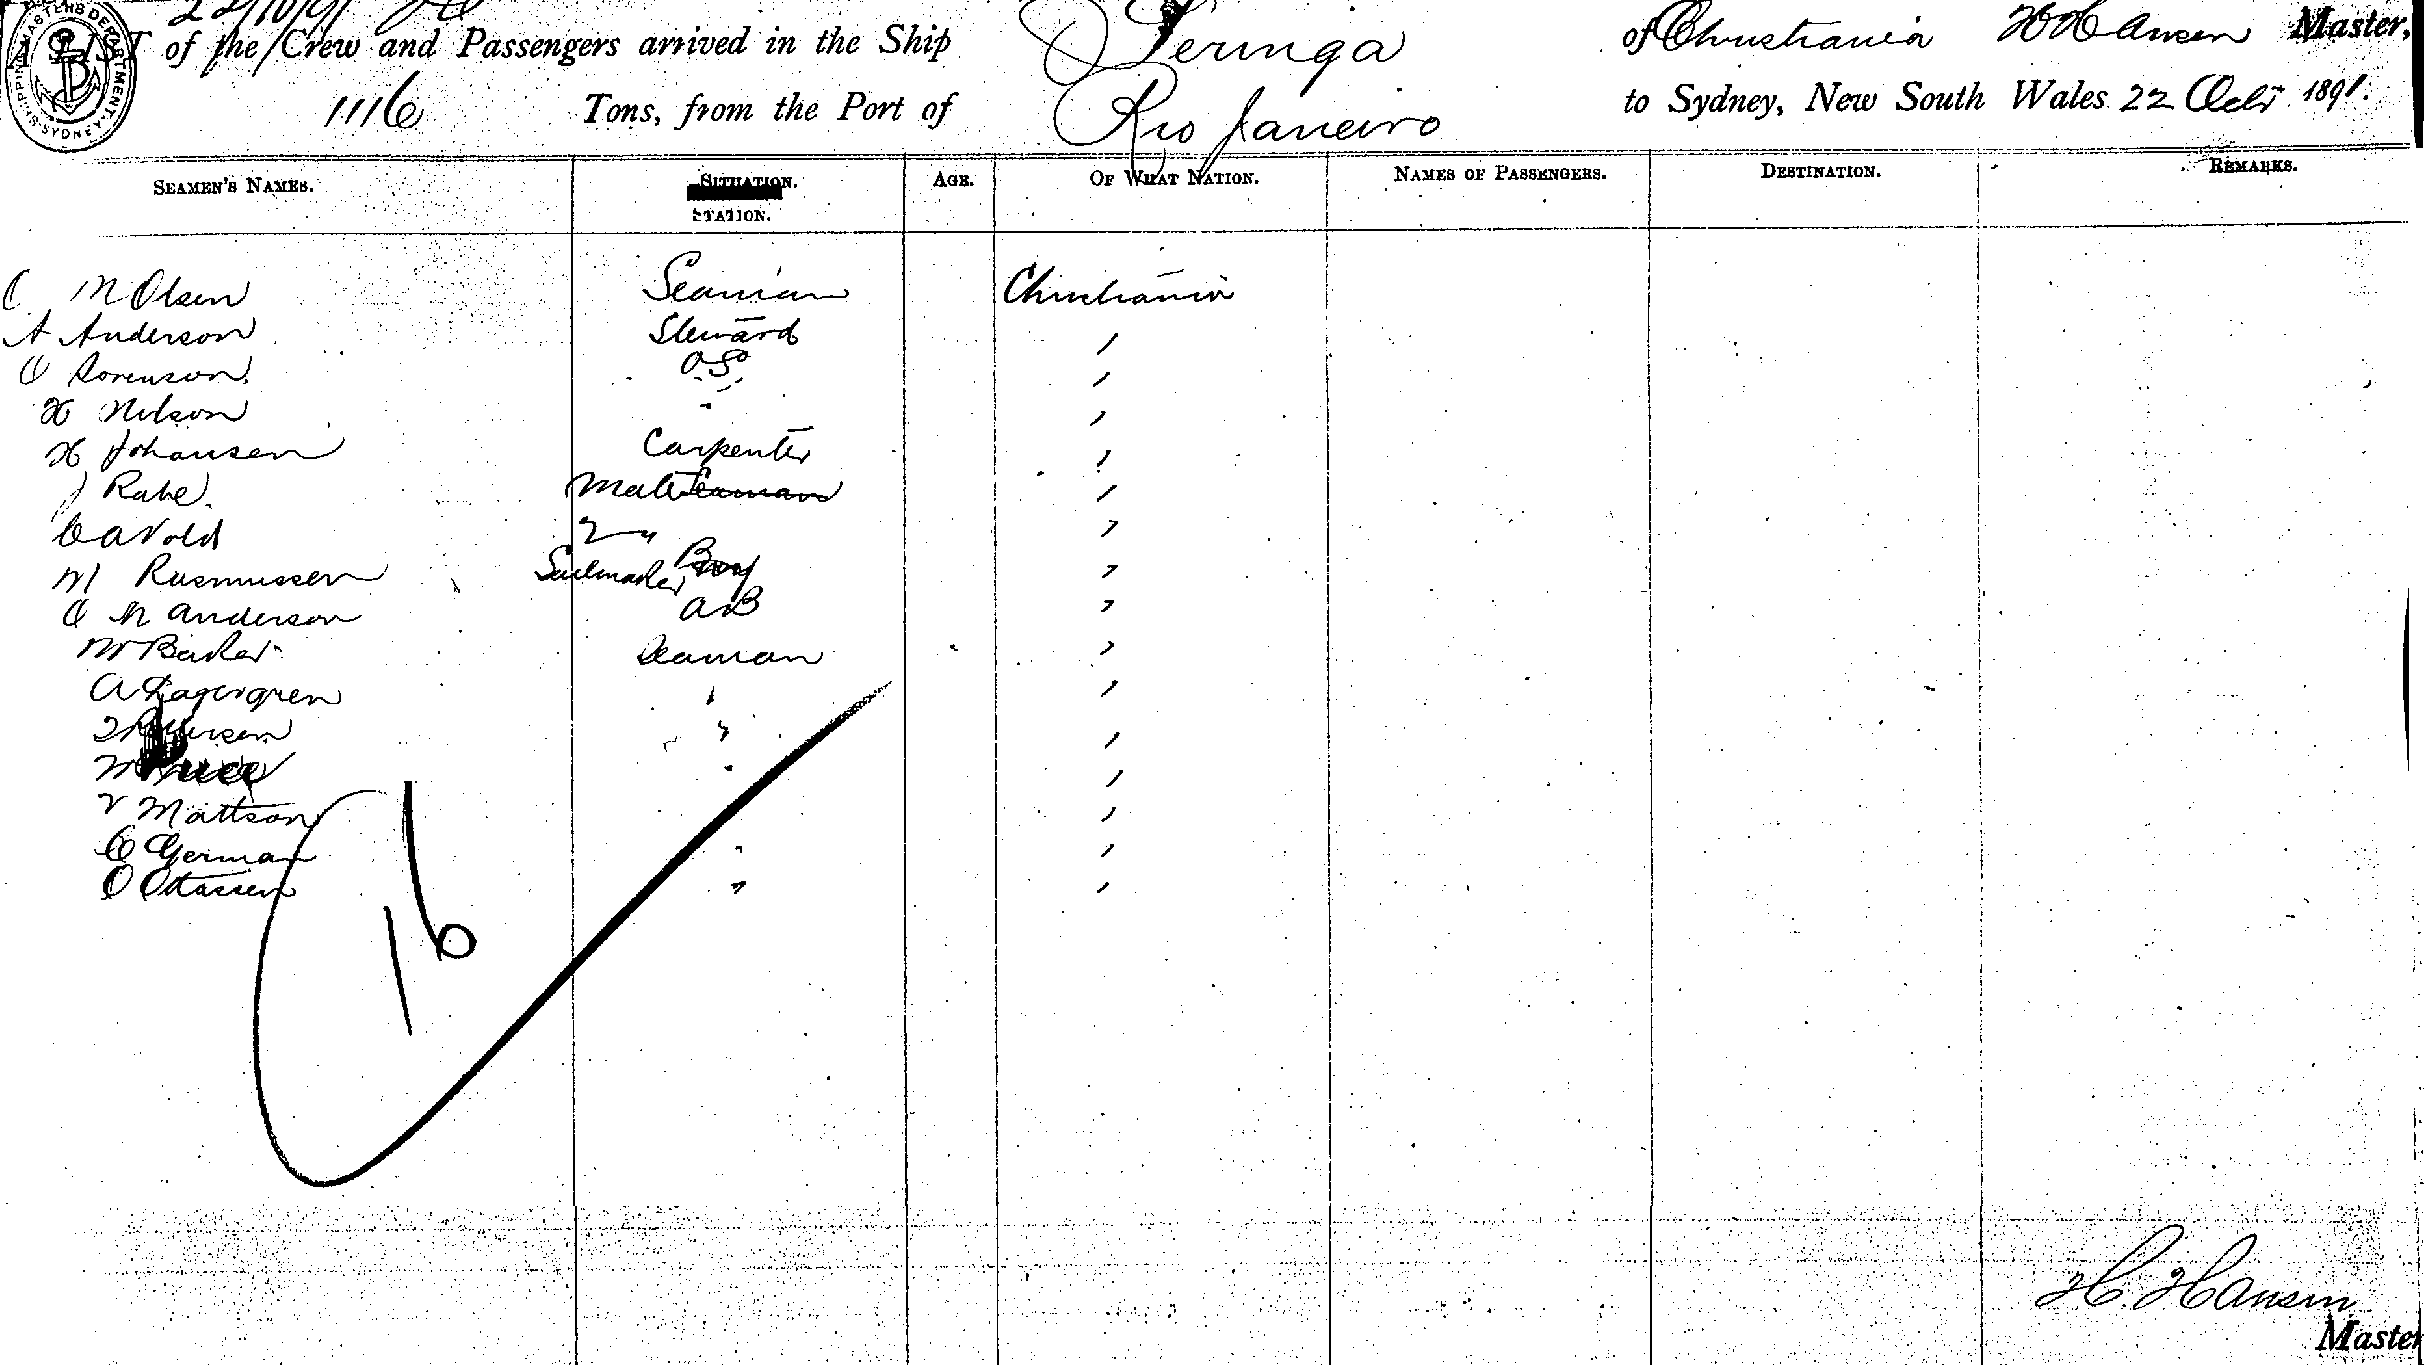 22/10/91
SHIPPING MASTERS DEPARTMENT SYDNEY
A LIST of the Crew and Passengers arrived in the Ship Seringa of Christiania H Hansen Master,
1116 Tons, from the Port of Rio Janeiro to Sydney, New South Wales 22 Octr 1891.
SEAMEN'S NAMES. SITUATION. STATION. AGE. OF WHAT NATION. NAMES OF PASSENGERS. DESTINATION. REMARKS.
C M Olsen Seaman Christiania
A Anderson Steward "
O Sorenson O.S. "
H Nilson " "
H Johansen Carpenter "
J Rabe Mate Seaman "
C A Vold 2 " "
M Rasmussen Sailmaker Boy "
O M Anderson AB "
M Seaman "
A Lagergren " "
" "
M " "
V Mattson "
C German " "
O " "
16
H. Hansen
Master